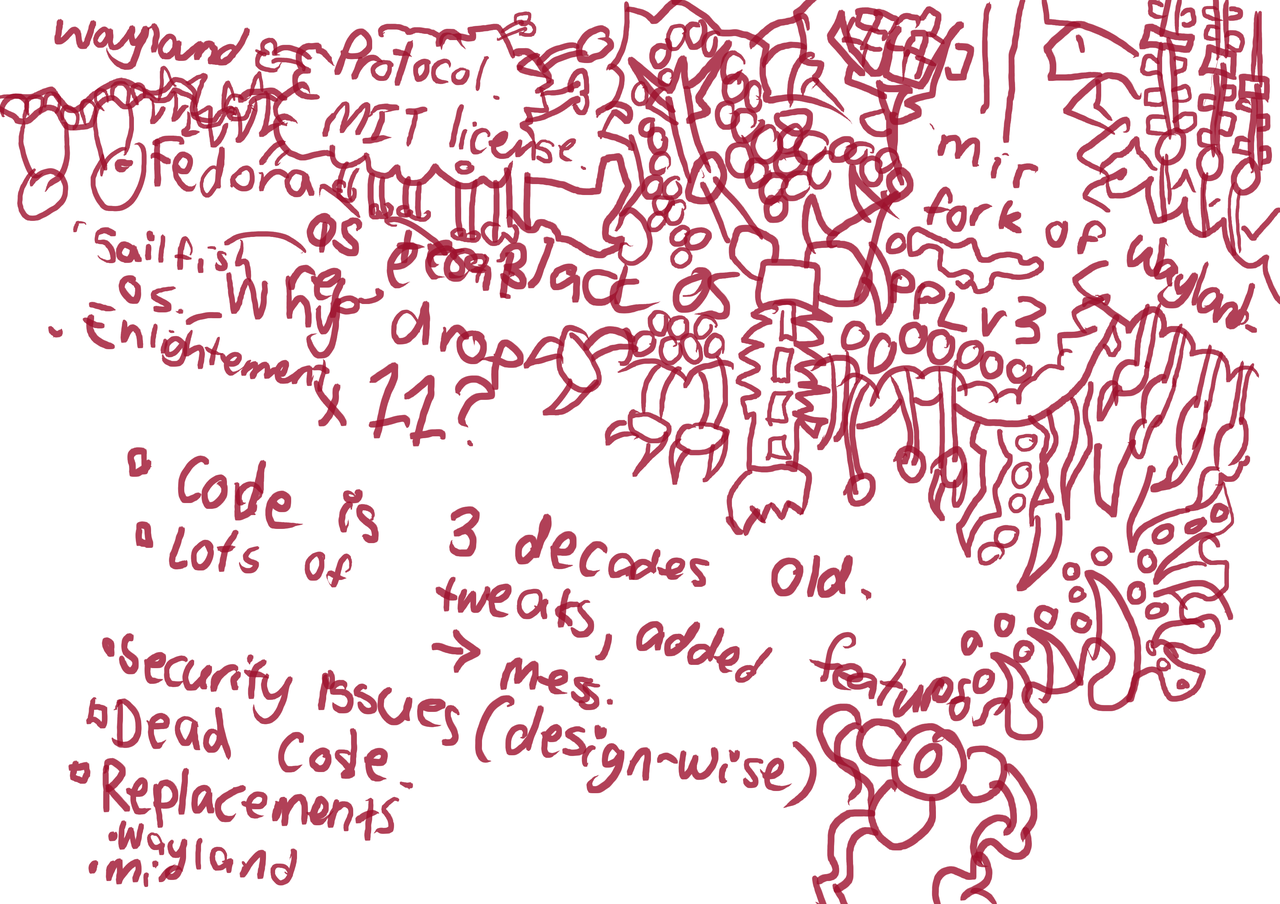 Wayland
Protocol
MIT license.
Fedora
mir
fork of
Wayland.
PPL v3
Sailfish
os.
os
Black
os
Enlightement
Why drop
x 11?
Code is 3 decades old.
Lots of tweats, added features
→ mes.
Security issues (design-wise)
Dead Code
Replacements
• Wayland
• Mir